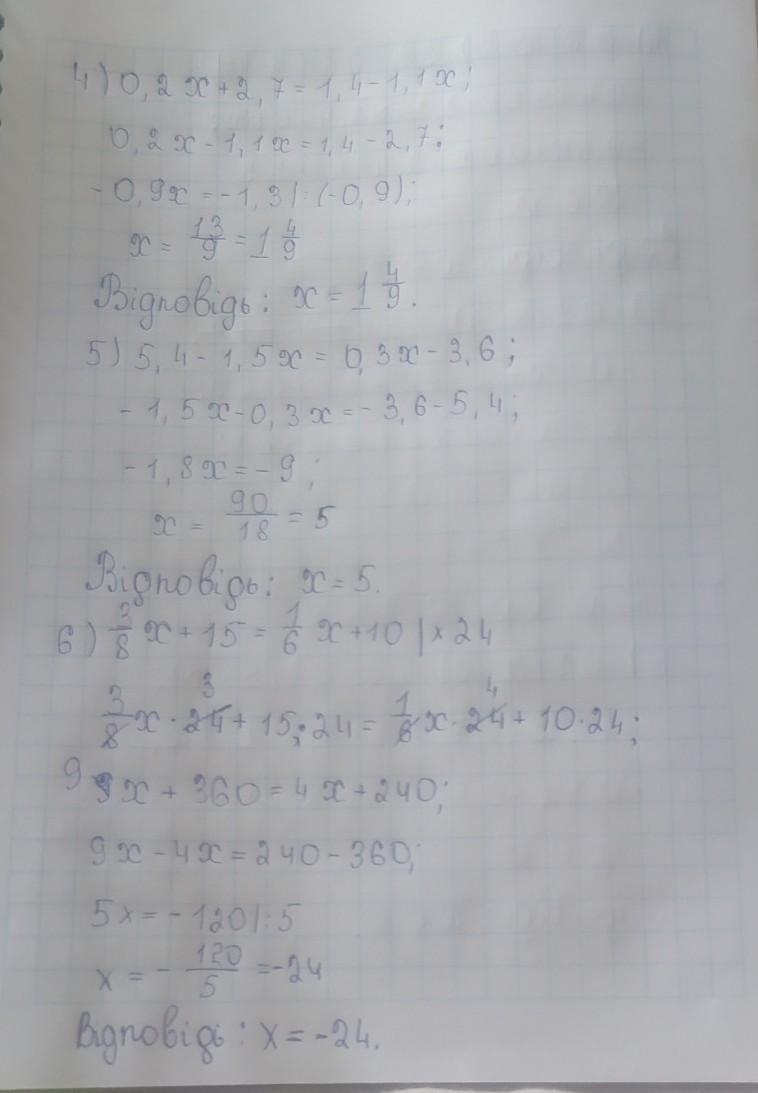 4) 0,2x+2,7=1,4-1,1x;
0,2x-1,1x=1,4-2,7;
-0,9x=-1,3|:(-0,9);
x = 13/9 = 1 4/9
Відповідь: x = 1 4/9.
5) 5,4-1,5x = 0,3x-3,6;
-1,5x-0,3x=-3,6-5,4;
-1,8x=-9;
x = 90/18 = 5
Відповідь: x=5.
6) 3/8 x+15 = 1/6 x+10 |×24
3/8 x·24 3 + 15·24 = 1/6 x·24 4 + 10·24;
9 9x + 360 = 4x+240;
9x-4x=240-360;
5x=-120|:5
x = - 120/5 =-24
Відповідь: x=-24.